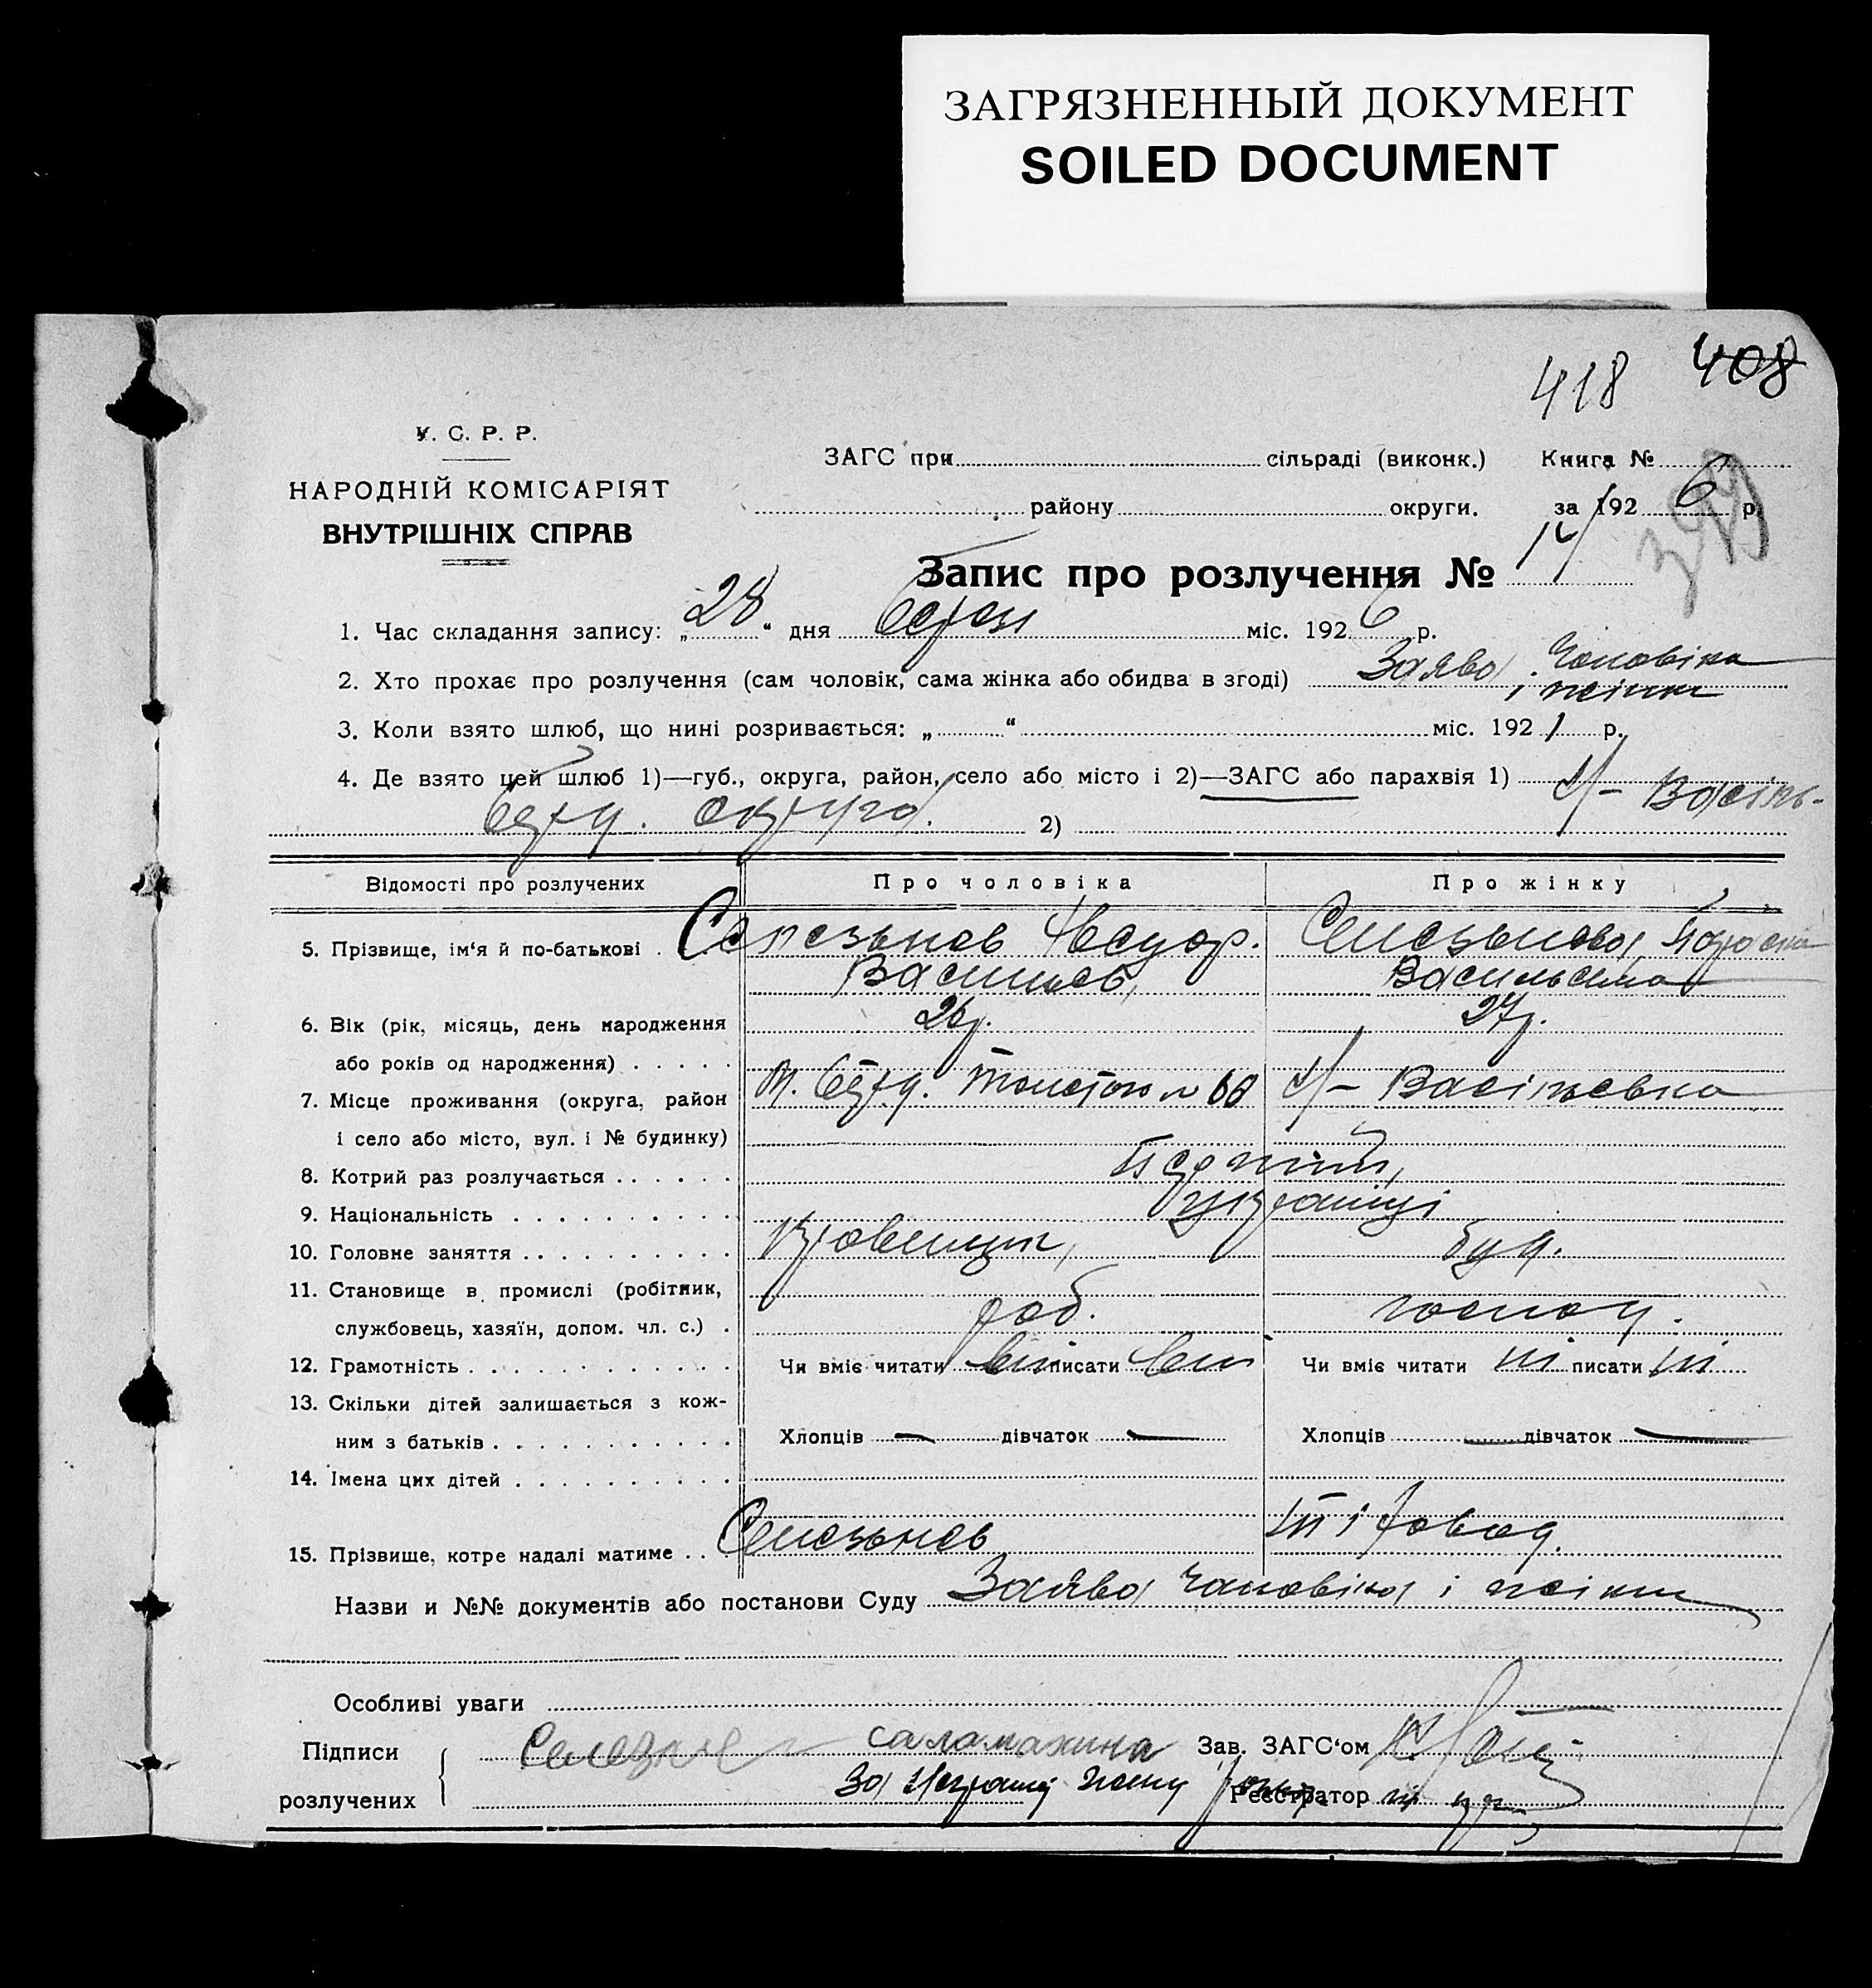 ЗАГРЯЗНЕННЫЙ ДОКУМЕНТ
SOILED DOCUMENT
418 408
У. С. Р. Р.
НАРОДНІЙ КОМІСАРІЯТ
ВНУТРІШНІХ СПРАВ
ЗАГС при сільраді (виконк.) Книга №
району округи. за 1926 р.
Запис про розлучення № 14
1. Час складання запису: „28“ дня міс. 1926 р.
2. Хто прохає про розлучення (сам чоловік, сама жінка або обидва в згоді) Заява чоловіка
і жінки
3. Коли взято шлюб, що нині розривається: „ “ міс. 1921 р.
4. Де взято цей шлюб 1)—губ., округа, район, село або місто і 2)—ЗАГС або парахвія 1)
округа. 2)
Відомості про розлучених Про чоловіка Про жінку
5. Прізвище, ім‘я й по-батькові Селезньов Селезньова
Васильев Васильевна
6. Вік (рік, місяць, день народження 26р. 27р.
або років од народження)
7. Місце проживання (округа, район м. Толстого № 68 Васілевка
і село або місто, вул. і № будинку)
8. Котрий раз розлучається Перший
9. Національність українці
10. Головне заняття
11. Становище в промислі (робітник, роб. господ.
службовець, хазяїн, допом. чл. с.)
12. Грамотність Чи вміє читати вміє писати вміє Чи вміє читати ні писати ні
13. Скільки дітей залишається з кож-
ним з батьків Хлопців — дівчаток — Хлопців — дівчаток —
14. Імена цих дітей
15. Прізвище, котре надалі матиме Селезньов
Назви и №№ документів або постанови Суду Заява чоловіка і жінки
Особливі уваги
Підписи Селезнев саламахина Зав. ЗАГС‘ом
розлучених За Реєстратор